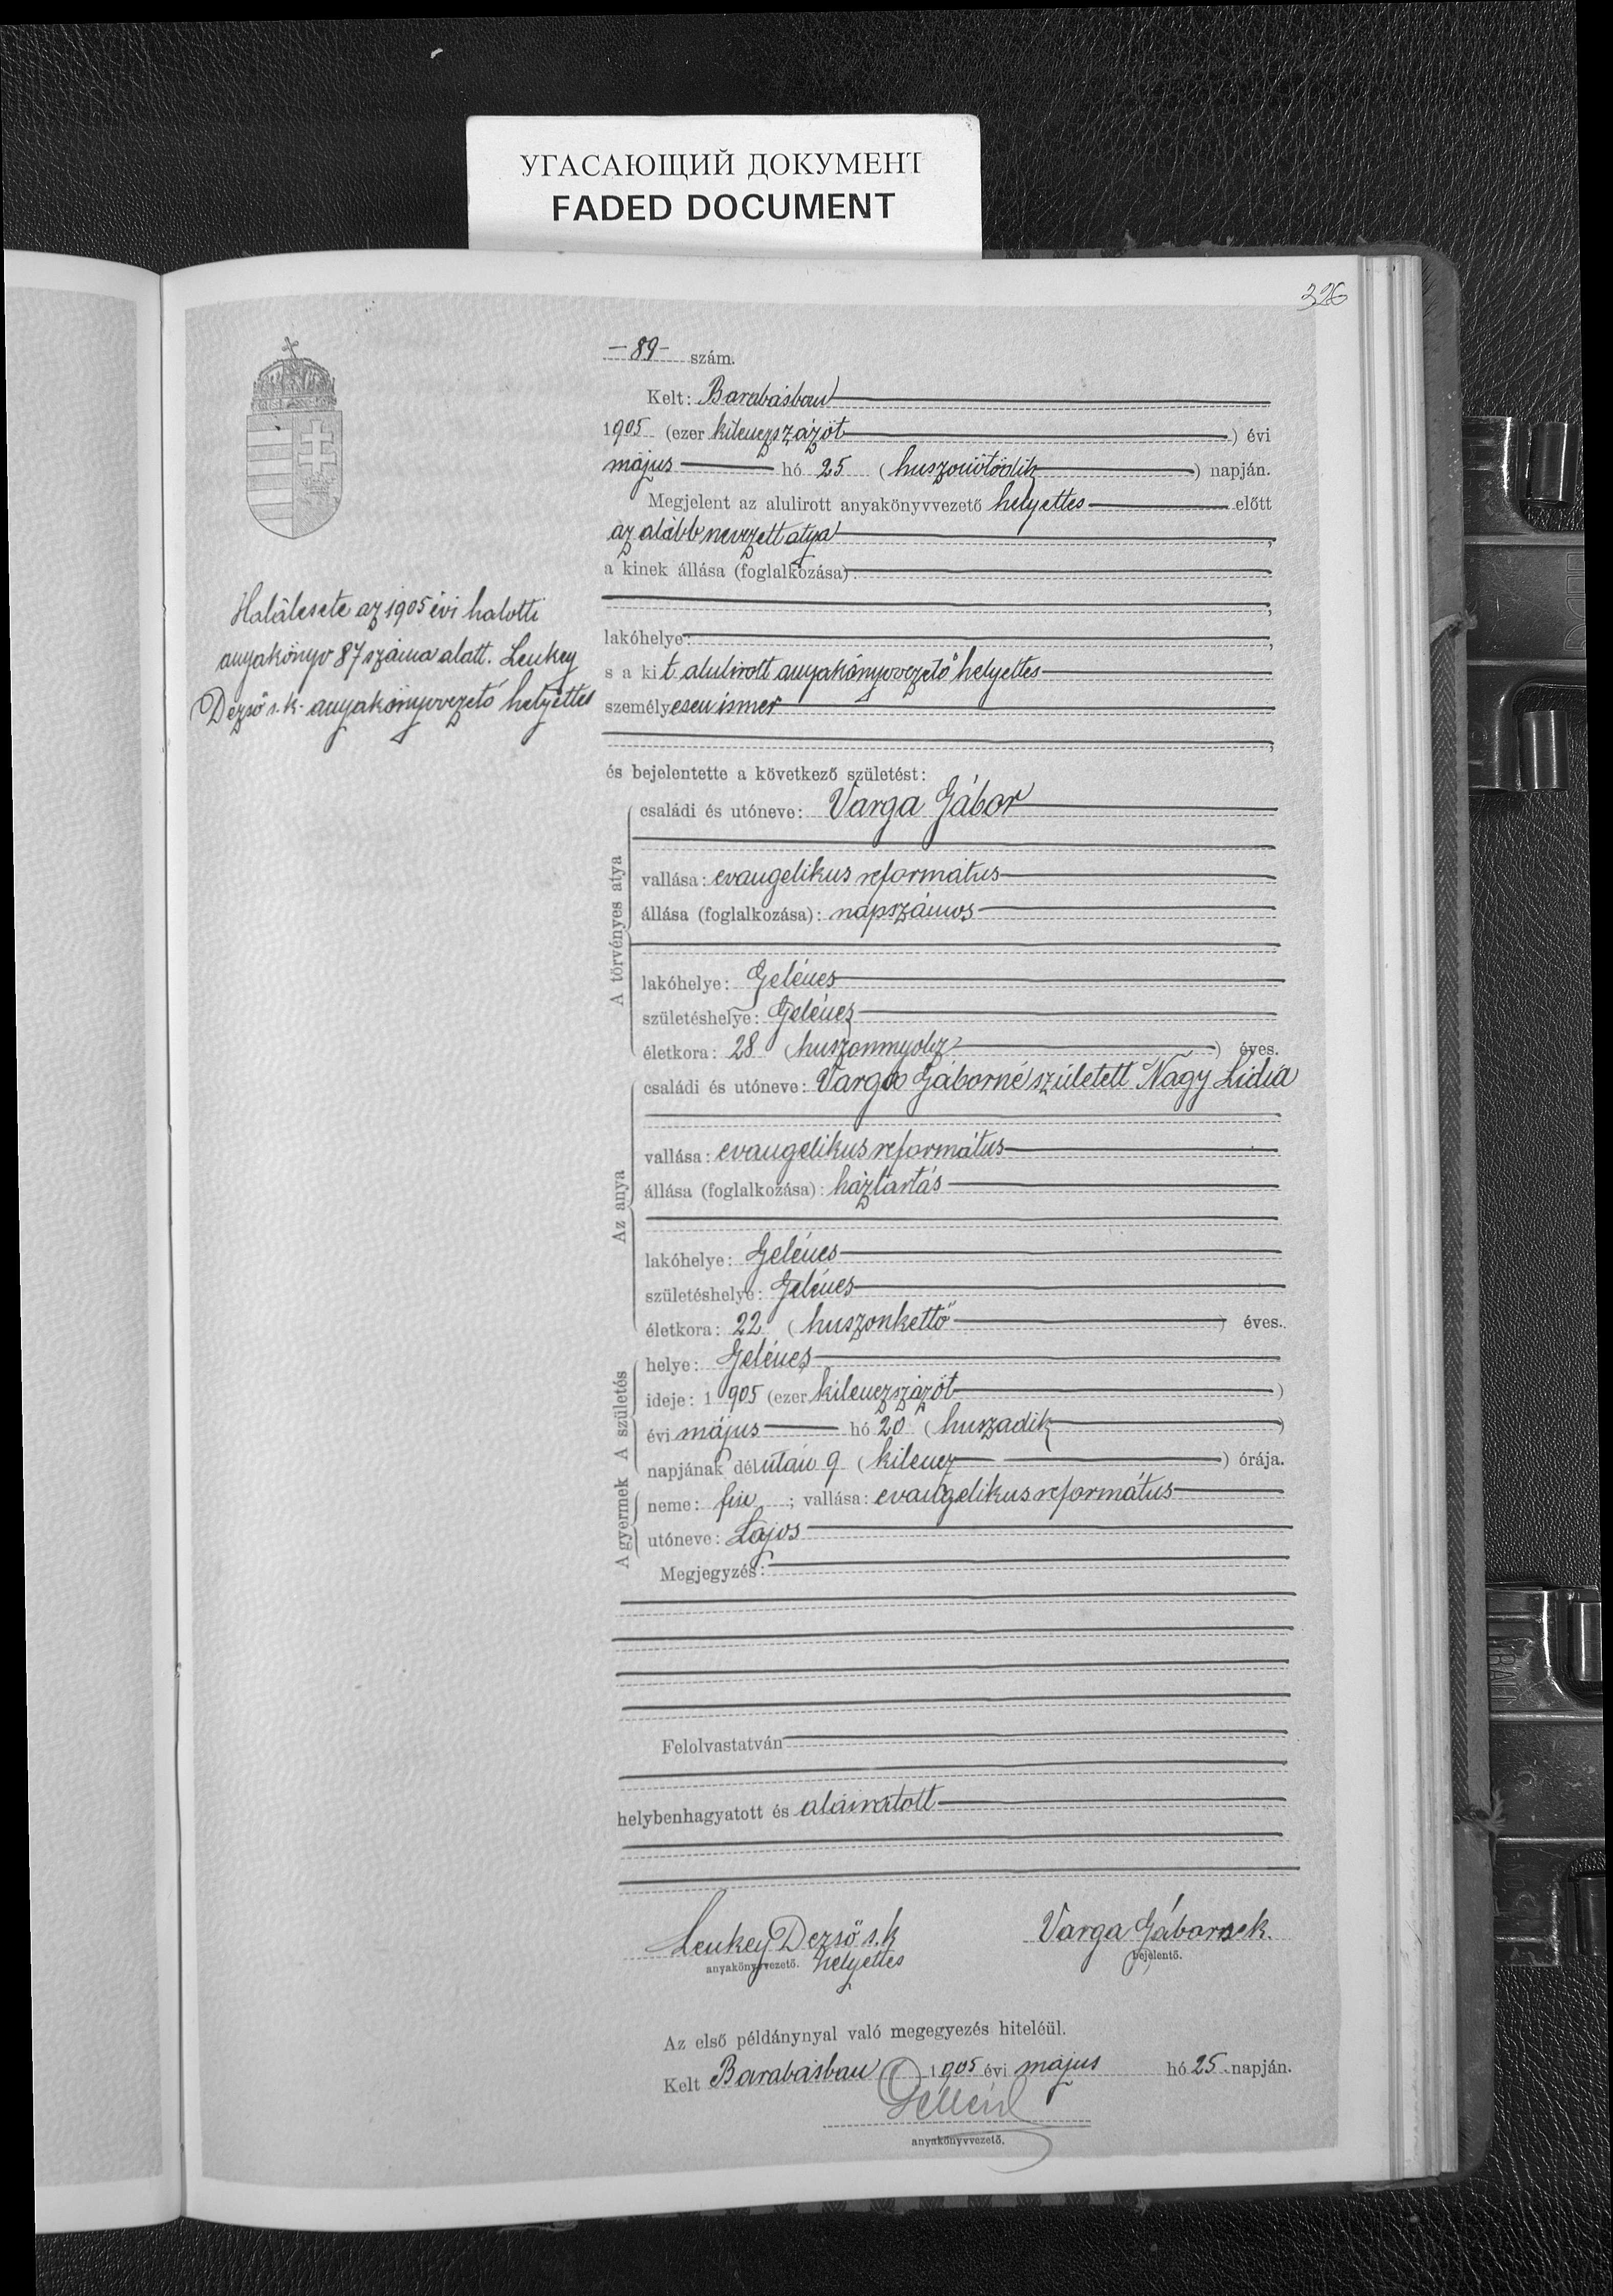 УГАСАЮЩИЙ ДОКУМЕНТ
FADED DOCUMENT
326
-89- szám.
Kelt: Barabásban
1905 (ezer kilenczszázöt) évi
május hó 25 (huszonötödik) napján.
Megjelent az alulirott anyakönyvvezető helyettes előtt
az alább nevezett atya,
a kinek állása (foglalkozása):
,
lakóhelye: ,
s a kit alulirott anyakönyvvezető helyettes
személyesen ismer
;
és bejelentette a következő születést:
Halálesete az 1905 évi halotti
anyakönyv 87 száma alatt. Leukey
Dezső s.k. anyakönyvvezető helyettes
A törvényes atya
családi és utóneve: Varga Gábor
vallása: evangelikus református
állása (foglalkozása): napszámos
lakóhelye: Gelénes
születéshelye: Gelénes
életkora: 28 (huszonnyolcz) éves.
Az anya
családi és utóneve: Varga Gáborné született Nagy Lidia
vallása: evangelikus református
állása (foglalkozása): háztartás
lakóhelye: Gelénes
születéshelye: Gelénes
életkora: 22 (huszonkettő) éves.
A születés
helye: Gelénes
ideje: 1905 (ezer kilenczszázöt)
évi május hó 20 (huszadik)
napjának délután 9 (kilencz) órája.
A gyermek
neme: fiu; vallása: evangelikus református
utóneve: Lajos
Megjegyzés:
Felolvastatván
helybenhagyatott és aláiratott
Leukey Dezső s.k Varga Gábor sek.
anyakönyvvezető. helyettes bejelentő.
Az első példánynyal való megegyezés hiteléül.
Kelt Barabásban 1905 évi május hó 25 napján.
anyakönyvvezető.